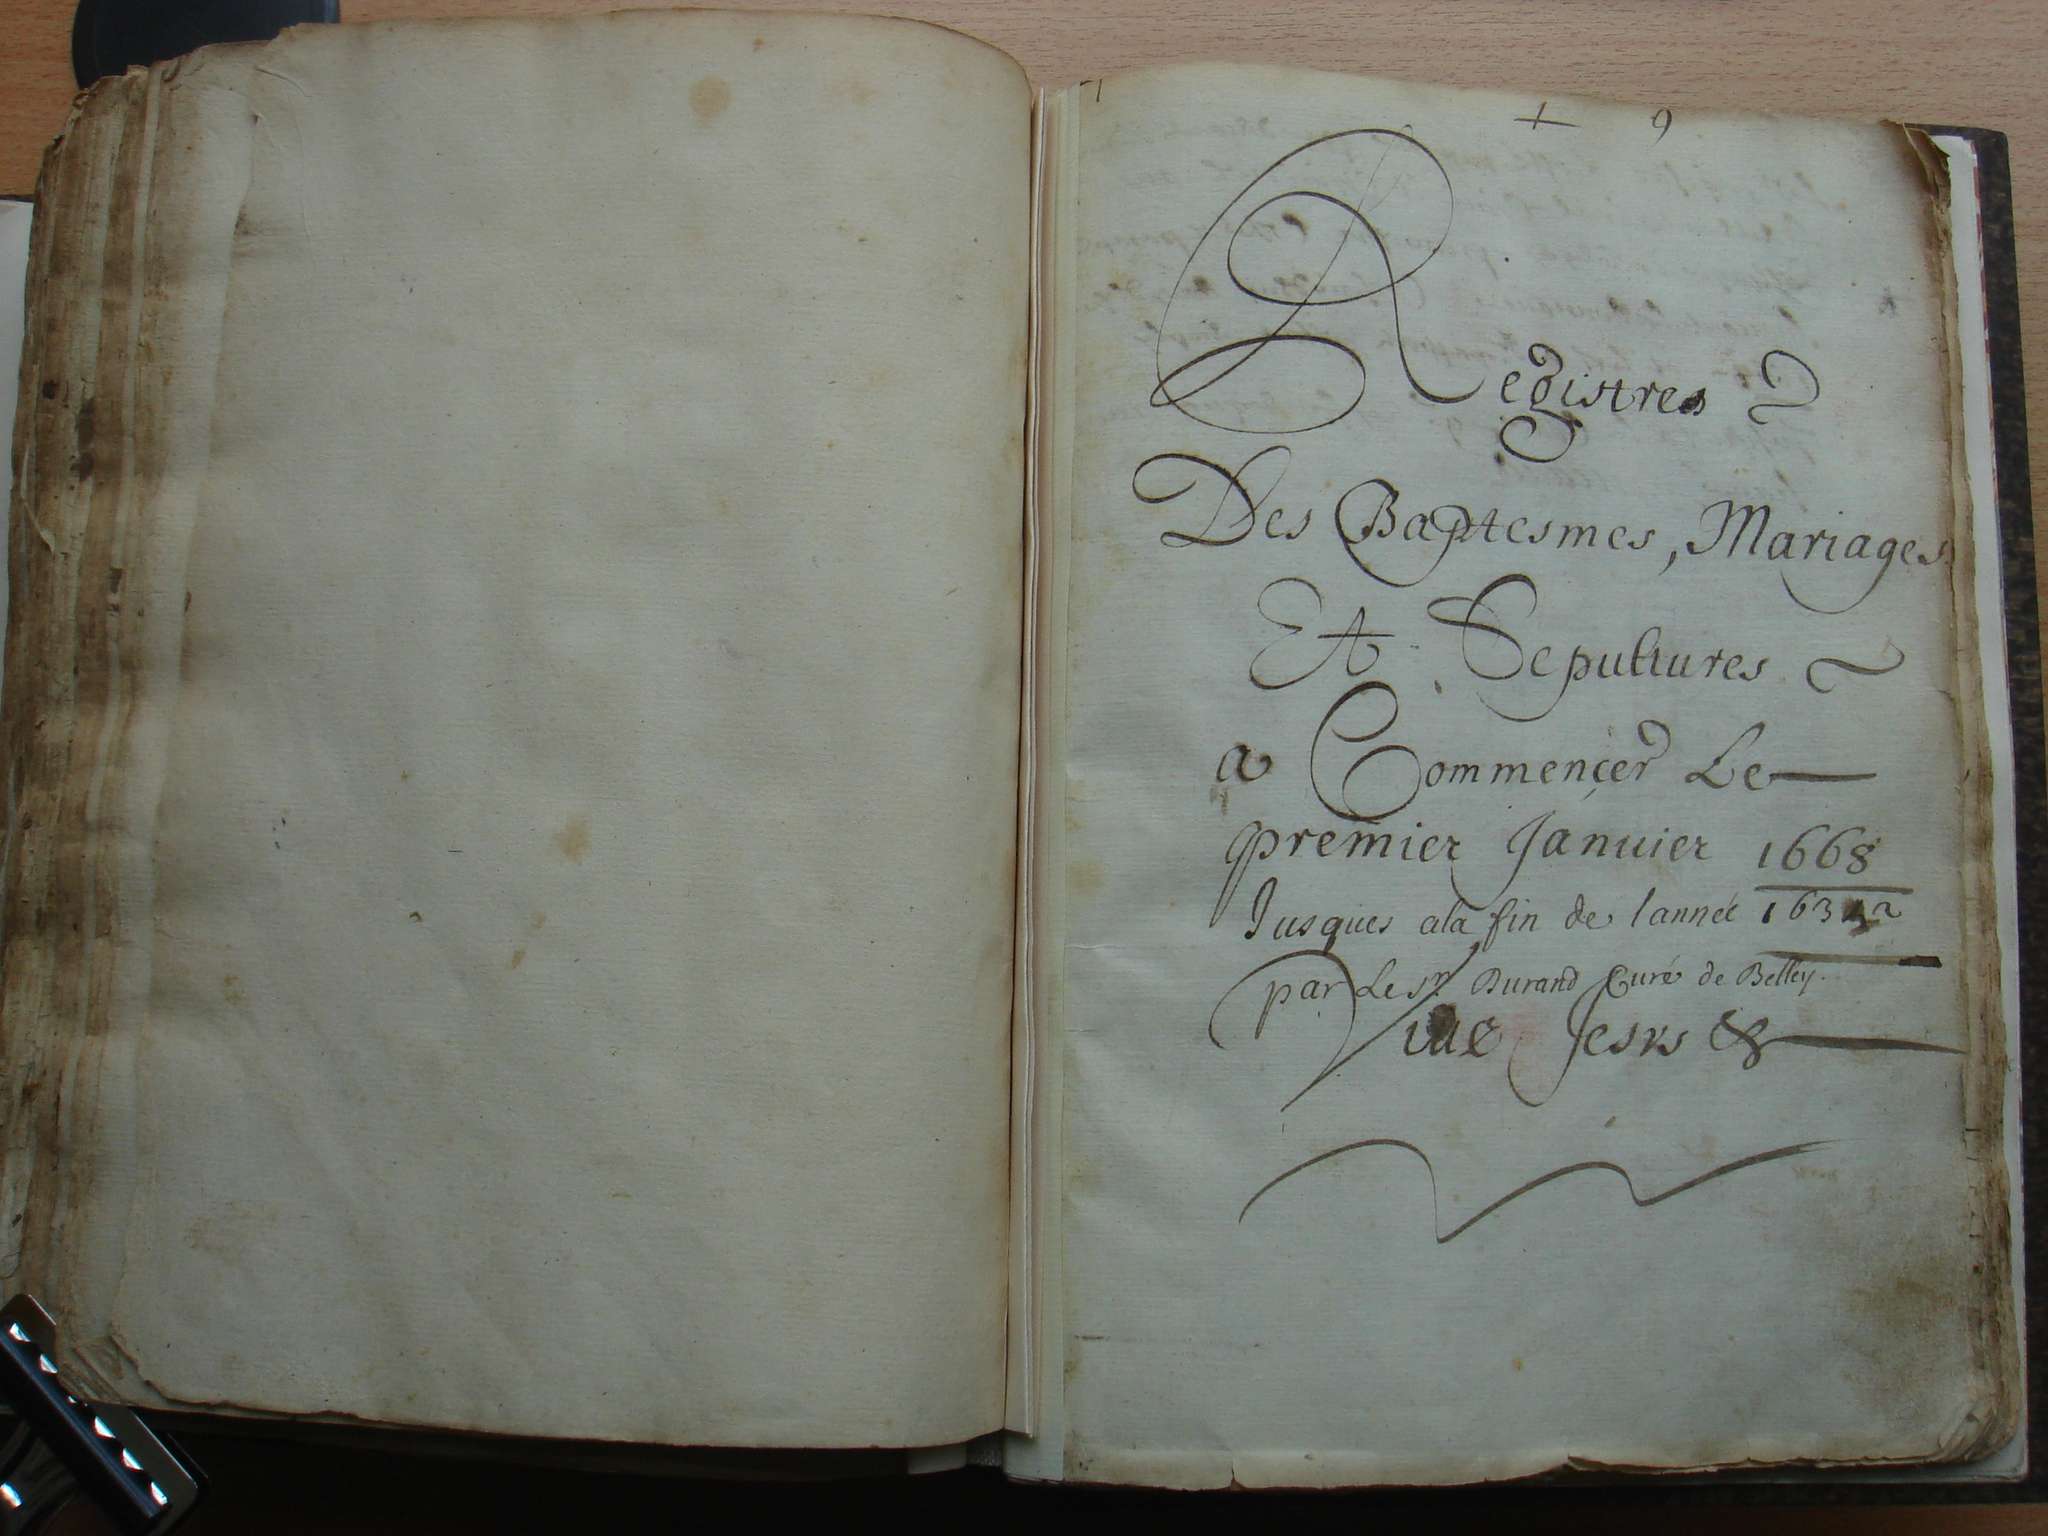 + 9
Registres
Des Baptesmes, Mariages
Et Sepultures
a Commençer Le
premier Januier 1668
Jusques ala fin de lannée
par Le sr. Durand Curé de Belley.
Viue Jesus &